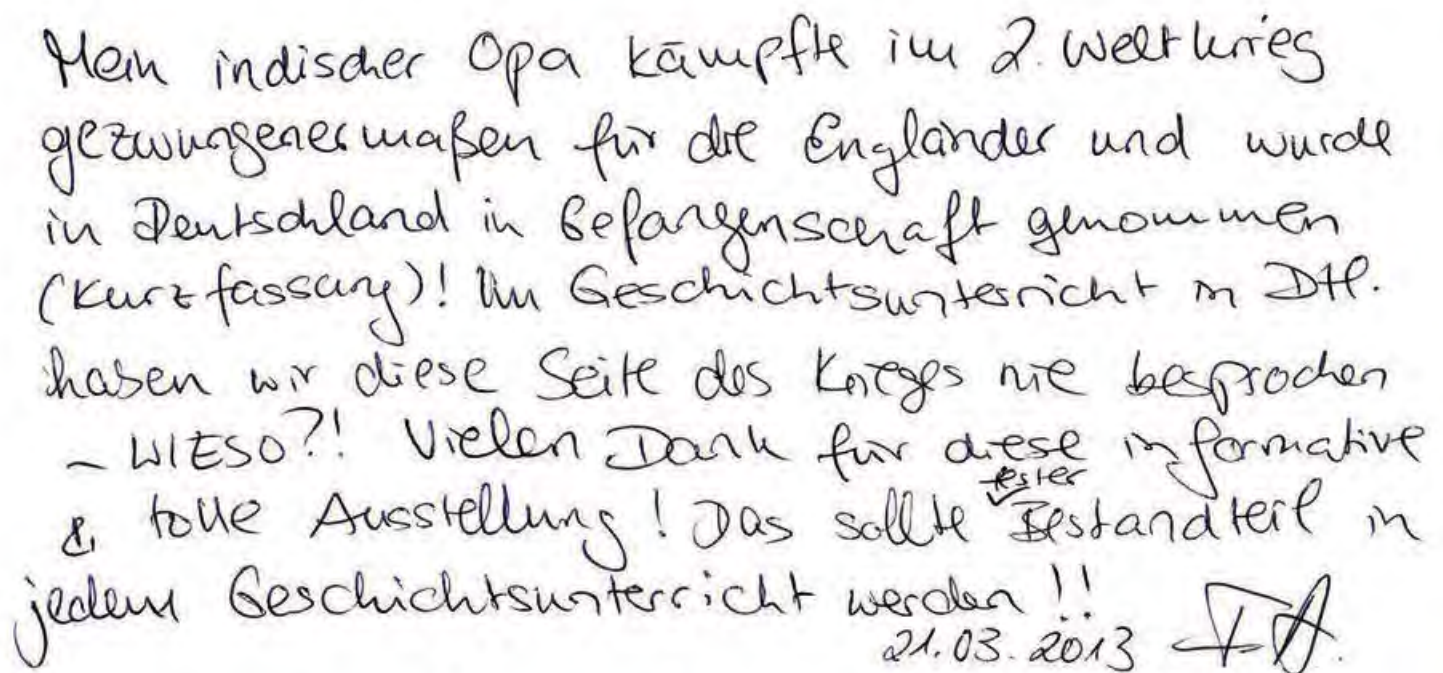 Mein indischer Opa kämpfte im 2. Weltkrieg
gezwungenermaßen für die Engländer und wurde
in Deutschland in Gefangenschaft genommen
(Kurzfassung)! Im Geschichtsunterricht in Dtl.
haben wir diese Seite des Krieges nie besprochen
- WIESO?! Vielen Dank für diese informative
& tolle Ausstellung! Das sollte fester Bestandteil in
jedem Geschichtsunterricht werden!!
21.03.2013